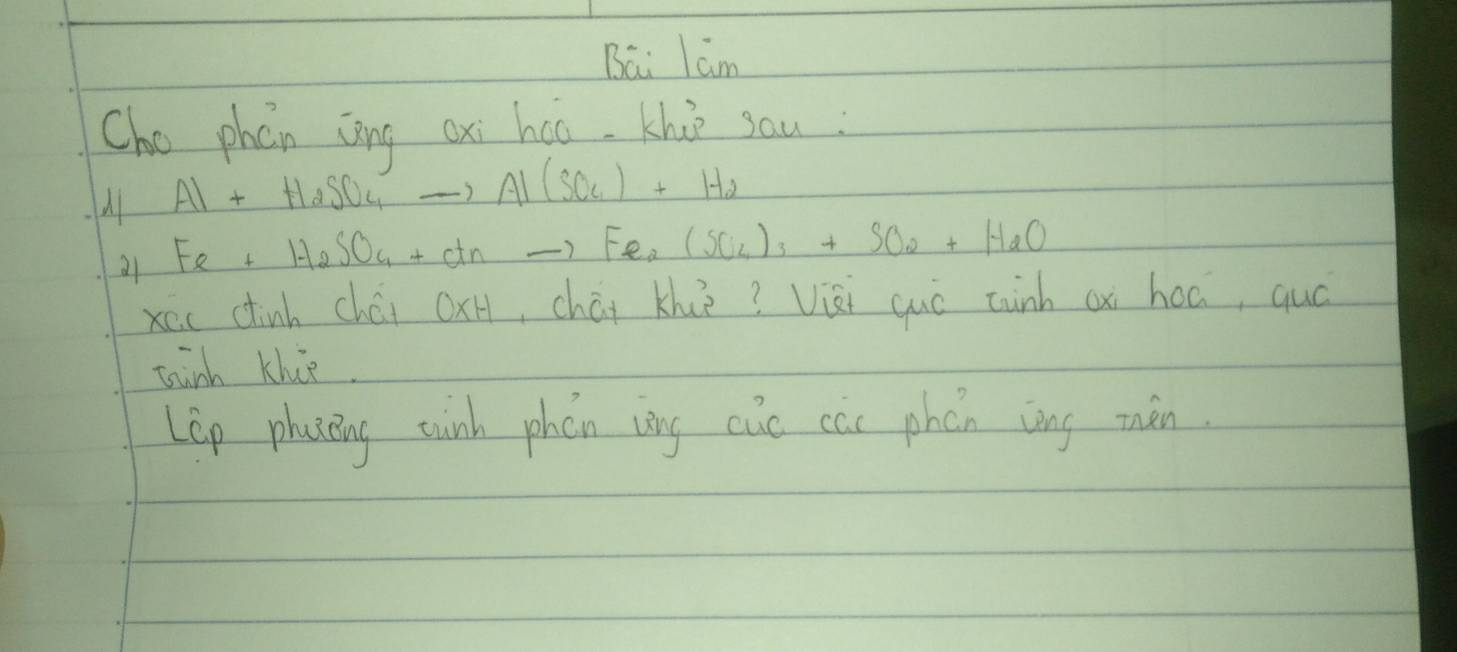 Bài làm
Cho phản ứng oxi hóa - khử sau :
1) Al + H2SO4 → Al(SO4) + H2
2) Fe + H2SO4 + đn → Fe2(SO4)3 + SO2 + H2O
xác định chất OXH, chất khử ? Viết quá trình oxi hoá, quá
trình khử.
Lập phương trình phản ứng của các phản ứng trên.